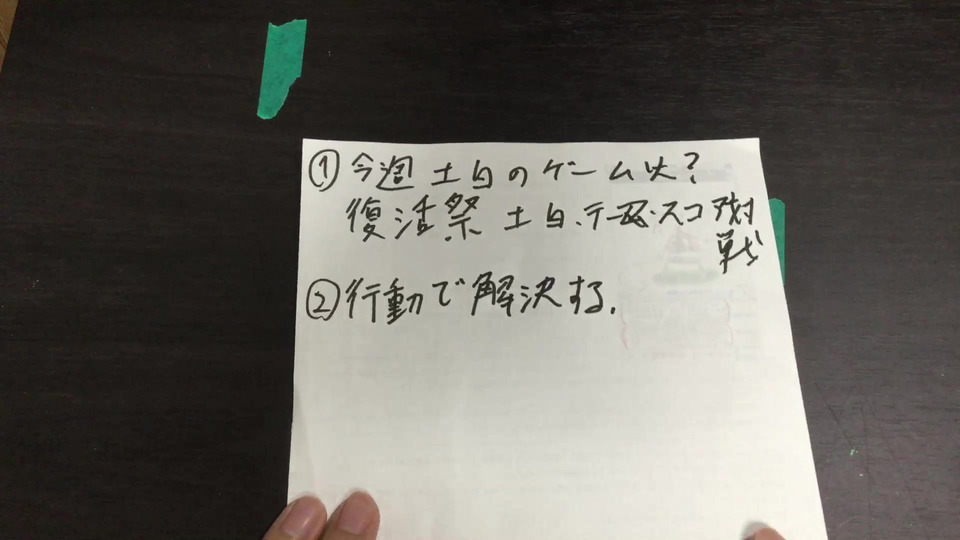 ①今週土日のゲームは?
復活祭 土日.テーマ.スコア対
戦
②行動で解決する.